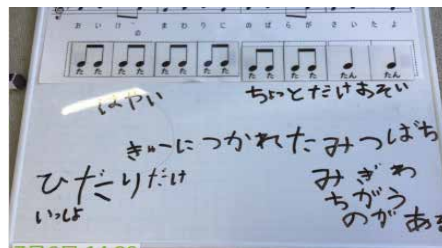 おいけの まわりに のばらが さいたよ
たた たた たた たた たた たた たん たん
はやい ちょっとだけおそい
きゅーにつかれたみつばち
ひだりだけ
いっしょ
みぎわ
ちがう
のがあ